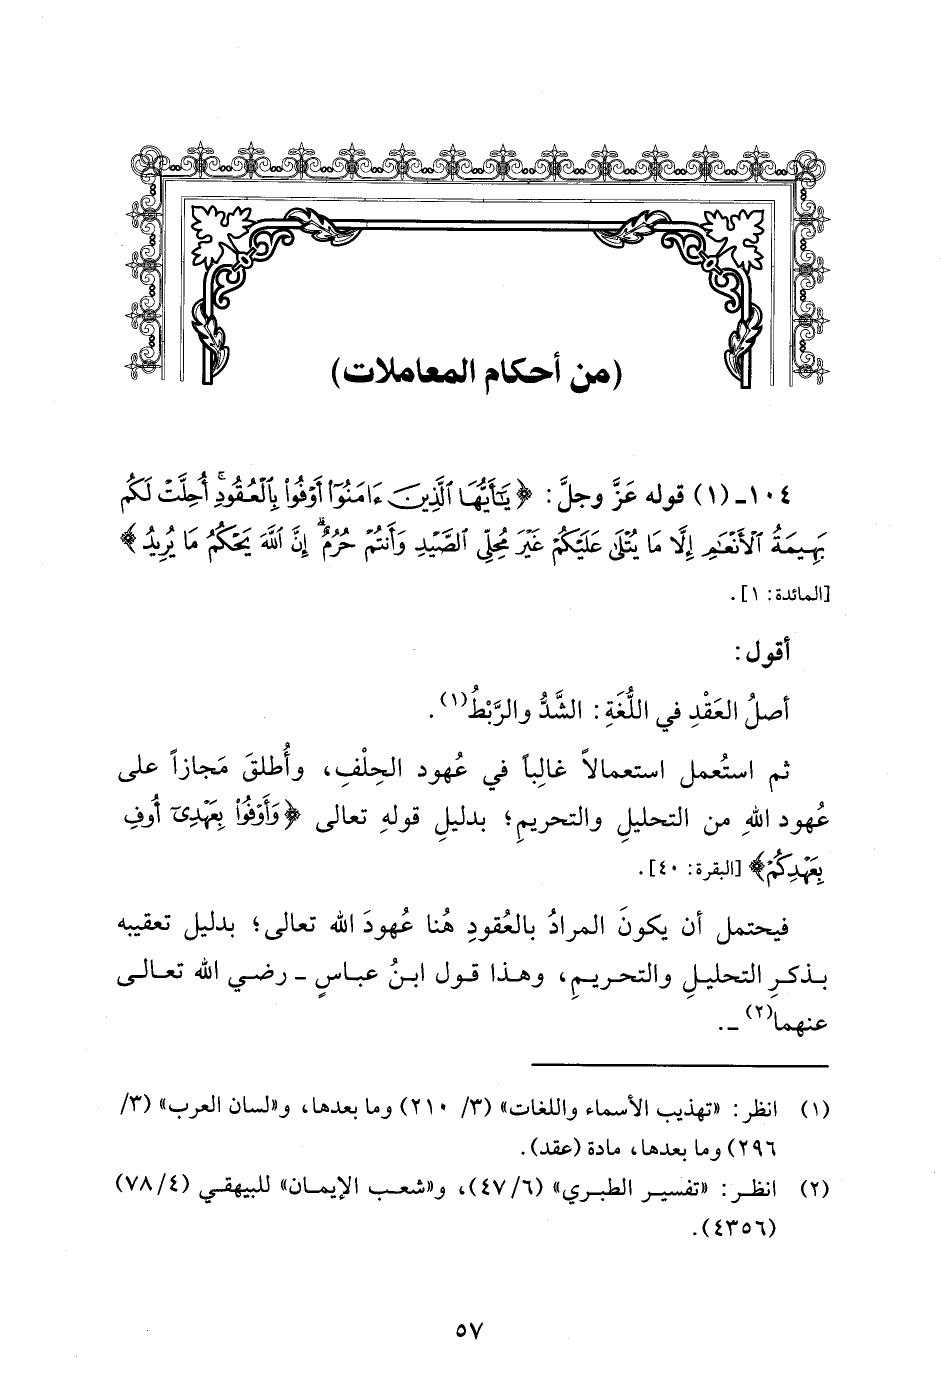 (من أحكام المعاملات)
١٠٤ـ (١) قوله عَزَّ وجلَّ: ﴿يَٰٓأَيُّهَا ٱلَّذِينَ ءَامَنُوٓا۟ أَوْفُوا۟ بِٱلْعُقُودِ ۚ أُحِلَّتْ لَكُم
بَهِيمَةُ ٱلْأَنْعَٰمِ إِلَّا مَا يُتْلَىٰ عَلَيْكُمْ غَيْرَ مُحِلِّى ٱلصَّيْدِ وَأَنتُمْ حُرُمٌ ۗ إِنَّ ٱللَّهَ يَحْكُمُ مَا يُرِيدُ﴾
[المائدة: ١].
أقول:
أصلُ العَقْدِ في اللُّغَةِ: الشَّدُّ والرَّبْطُ(١).
ثم استُعمل استعمالاً غالِباً في عُهود الحِلْفِ، وأُطلقَ مَجازاً على
عُهود اللهِ من التحليلِ والتحريمِ؛ بدليلِ قولهِ تعالى ﴿وَأَوْفُوا۟ بِعَهْدِىٓ أُوفِ
بِعَهْدِكُمْ﴾ [البقرة: ٤٠].
فيحتمل أن يكونَ المرادُ بالعُقودِ هُنا عُهودَ الله تعالى؛ بدليل تعقيبه
بذكرِ التحليلِ والتحريمِ، وهذا قول ابنُ عباسٍ ـ رضي الله تعالى
عنهما(٢) ـ.
(١) انظر: «تهذيب الأسماء واللغات» (٣/ ٢١٠) وما بعدها، و«لسان العرب» (٣/
٢٩٦) وما بعدها، مادة (عقد).
(٢) انظر: «تفسير الطبري» (٤٧/٦)، و«شعب الإيمان» للبيهقي (٧٨/٤)
(٤٣٥٦).
٥٧